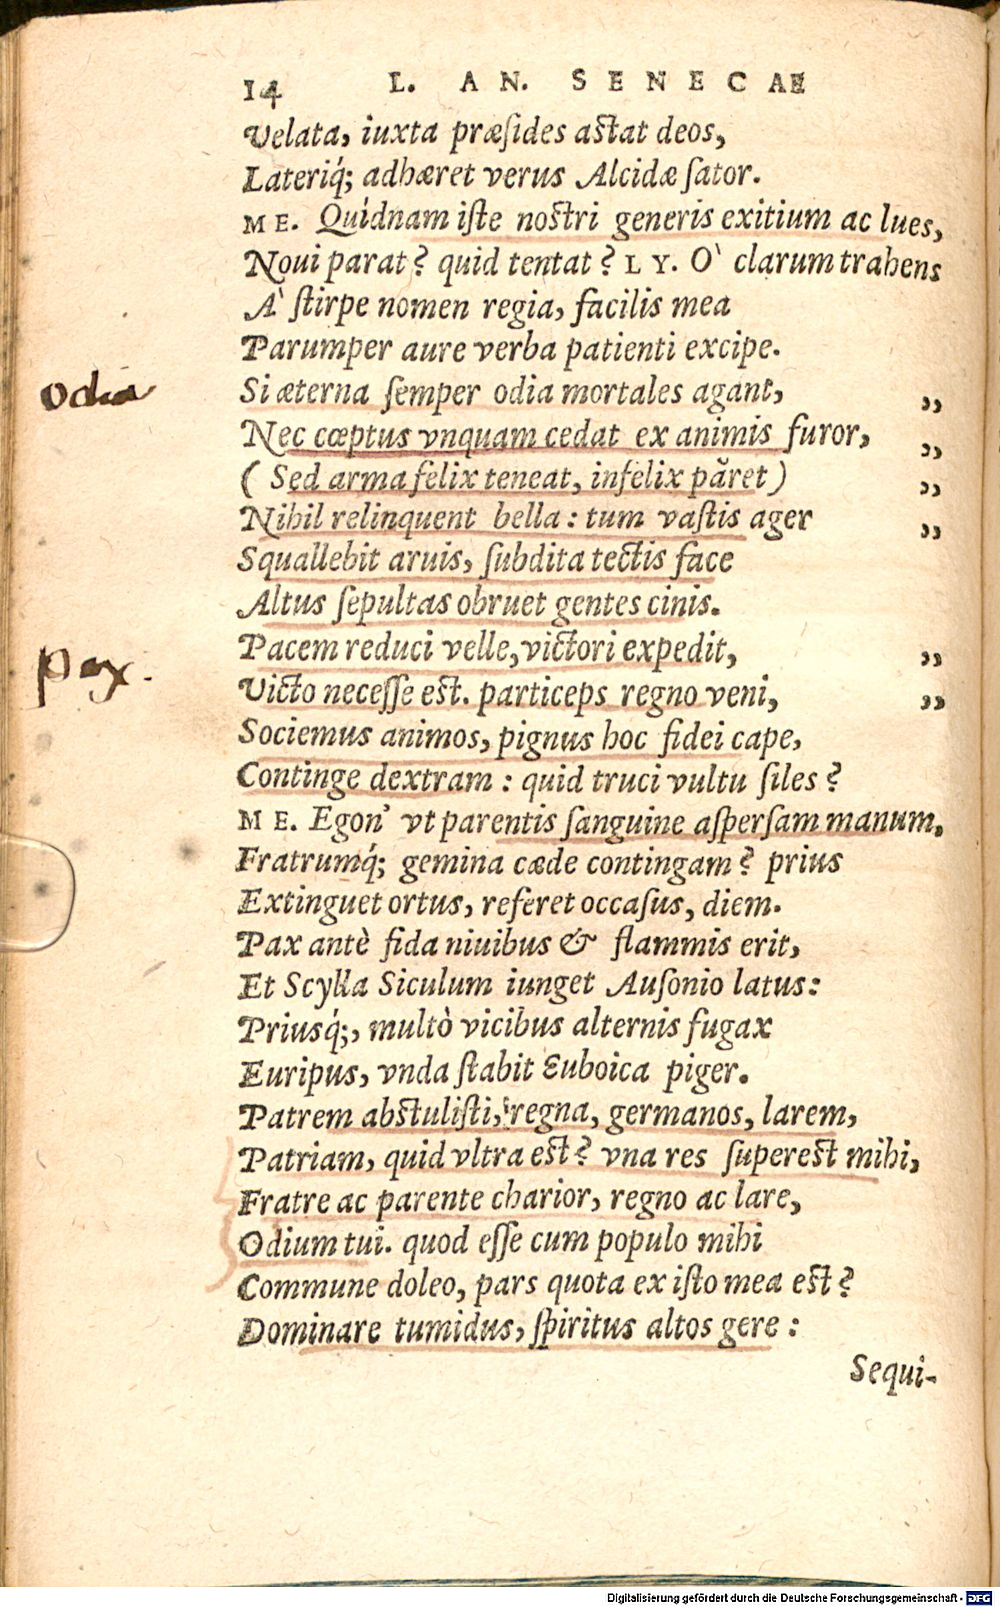 14 L. AN. SENECAE
Velata, iuxta præſides aſtat deos,
Lateriq́; adhæret verus Alcidæ ſator.
ME. Quidnam iſte noſtri generis exitium ac lues,
Noui parat? quid tentat? LY. O` clarum trahens
A` ſtirpe nomen regia, facilis mea
Parumper aure verba patienti excipe.
odia
Si æterna ſemper odia mortales agant, ,,
Nec cœptus vnquam cedat ex animis furor, ,,
( Sed arma felix teneat, infelix paret) ,,
Nihil relinquent bella: tum vaſtis ager ,,
Squallebit aruis, ſubdita tectis face
Altus ſepultas obruet gentes cinis.
pax.
Pacem reduci velle, victori expedit, ,,
Victo neceſſe eſt. particeps regno veni, ,,
Sociemus animos, pignus hoc fidei cape,
Continge dextram: quid truci vultu ſiles?
ME. Egon' vt parentis ſanguine aſperſam manum,
Fratrumq́; gemina cæde contingam? prius
Extinguet ortus, referet occaſus, diem.
Pax antè fida niuibus & flammis erit,
Et Scylla Siculum iunget Auſonio latus:
Priusq́;, multò vicibus alternis fugax
Euripus, vnda ſtabit Euboica piger.
Patrem abſtuliſti, regna, germanos, larem,
Patriam, quid vltra eſt? vna res ſupereſt mihi,
Fratre ac parente charior, regno ac lare,
Odium tui. quod eſſe cum populo mihi
Commune doleo, pars quota ex iſto mea eſt?
Dominare tumidus, ſpiritus altos gere:
Sequi-
Digitalisierung gefördert durch die Deutsche Forschungsgemeinschaft - DFG